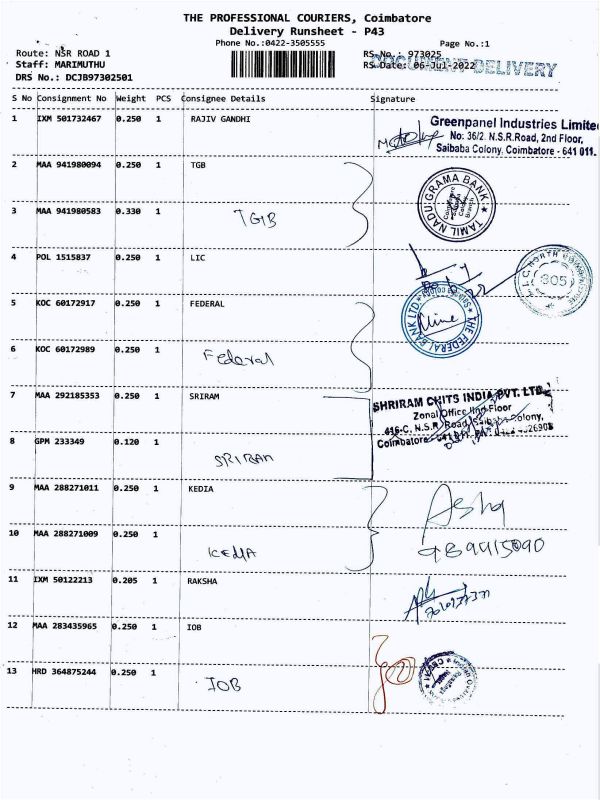 THE PROFESSIONAL COURIERS, Coimbatore
Delivery Runsheet - P43
Phone No.:0422-3505555
Page No.:1
Route: NSR ROAD 1
RS No.: 973025
Staff: MARIMUTHU
RS Date: 06-Jul-2022
DOCUMENT DELIVERY
DRS No.: DCJB97302501
S No Consignment No Weight PCS Consignee Details Signature
1 IXM 501732467 0.250 1 RAJIV GANDHI
Greenpanel Industries Limited
No: 36/2. N.S.R.Road, 2nd Floor,
Saibaba Colony, Coimbatore - 641 011.
2 MAA 941980094 0.250 1 TGB
TAMIL NADU GRAMA BANK
3 MAA 941980583 0.330 1 TGB
4 POL 1515837 0.250 1 LIC
305
5 KOC 60172917 0.250 1 FEDERAL
THE FEDERAL BANK LTD
6 KOC 60172989 0.250 1 Federal
7 MAA 292185353 0.250 1 SRIRAM
SHRIRAM CHITS INDIA PVT. LTD.
Zonal Office IInd Floor
416-C. N.S.R. Road, Saibaba Colony,
Coimbatore
8 GPM 233349 0.120 1 SRIRAM
9 MAA 288271011 0.250 1 KEDIA
Asha
10 MAA 288271009 0.250 1 KEDIA
11 IXM 50122213 0.205 1 RAKSHA
12 MAA 283435965 0.250 1 IOB
13 HRD 364875244 0.250 1 IOB